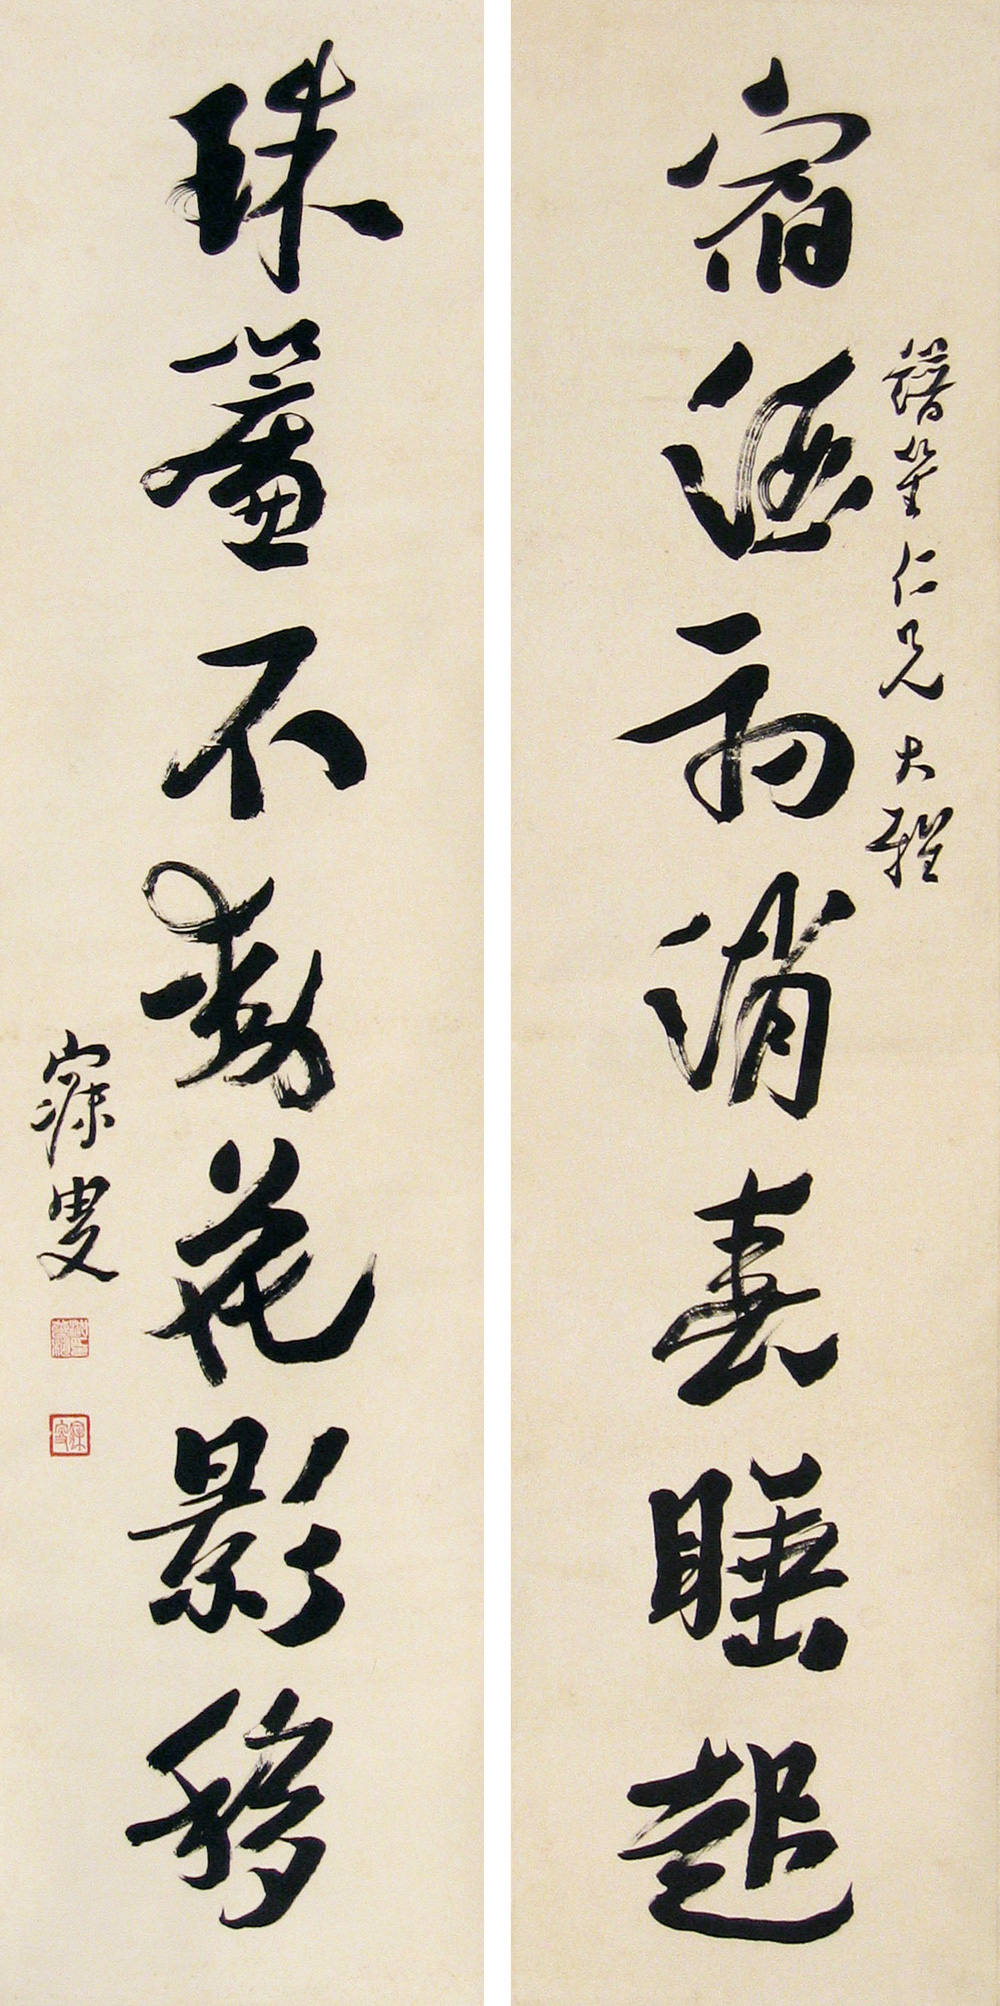 宿酒初消春睡起
仁兄大雅
珠簾不動花影移
寐叟